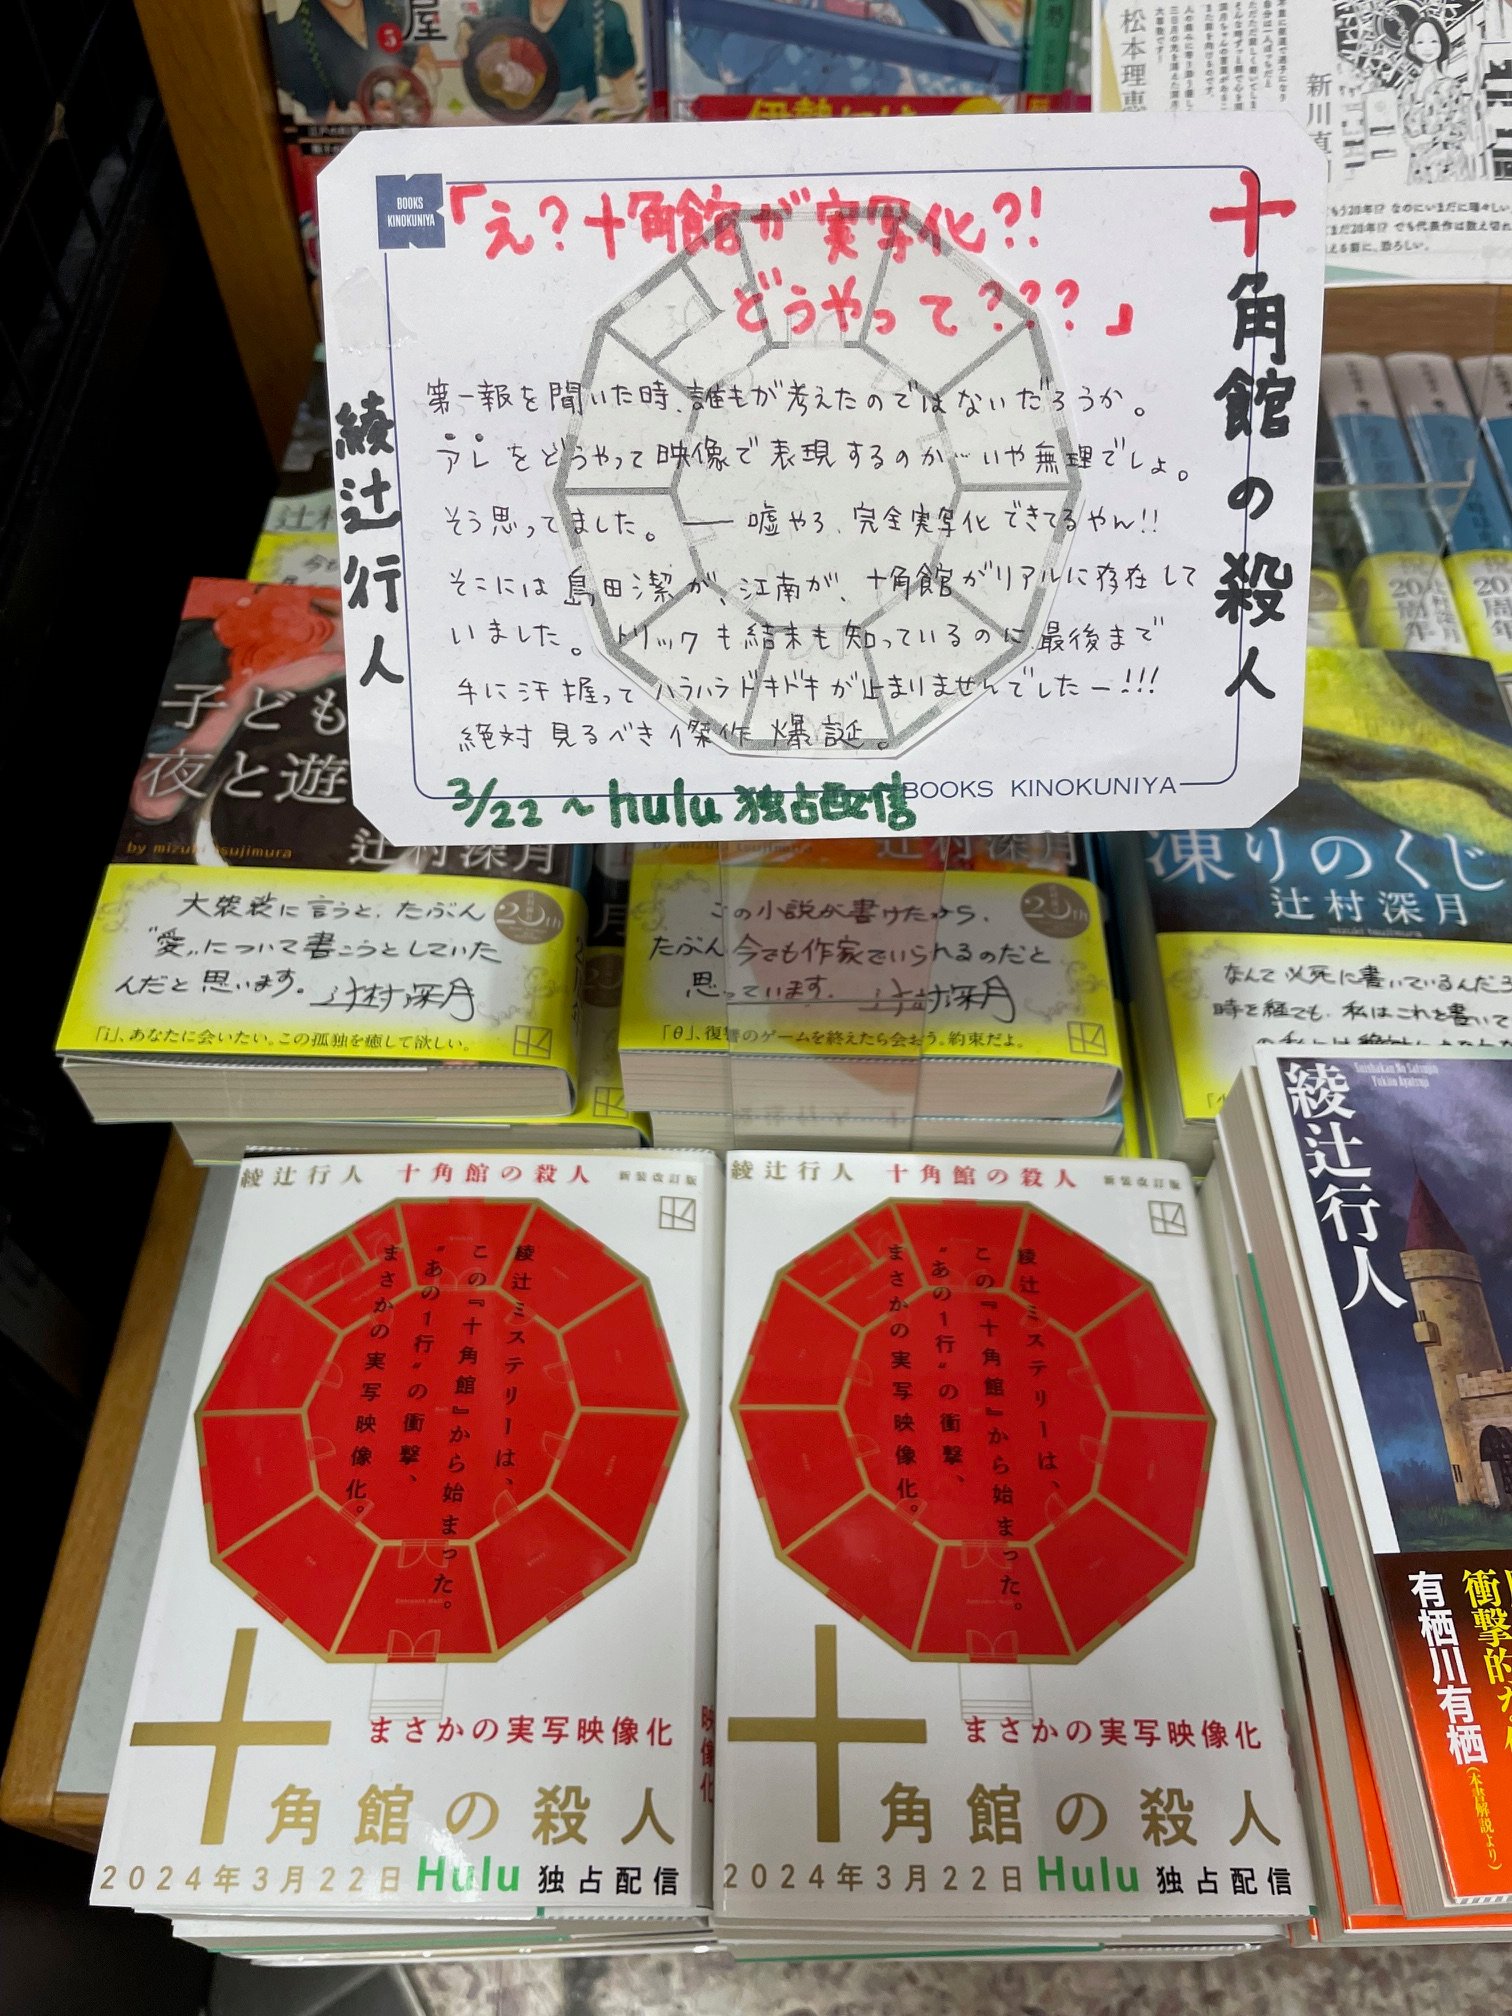 屋
5
松本理恵
新川直
もう20年!? なのにいまだに瑞々しい。
まだ20年!? でも代表作は数え切れ
える前に、恐ろしい。
BOOKS
KINOKUNIYA
「え？十角館が実写化?!
どうやって???」
十角館の殺人
綾辻行人
第一報を聞いた時、誰もが考えたのではないだろうか。
アレをどうやって映像で表現するのか…いや無理でしょ。
そう思ってました。――嘘やろ、完全実写化できてるやん!!
そこには島田潔が、江南が、十角館がリアルに存在して
いました。トリックも結末も知っているのに最後まで
手に汗握ってハラハラドキドキが止まりませんでしたー!!!
絶対見るべき傑作爆誕。
3/22～hulu独占配信
BOOKS KINOKUNIYA
辻村
子ども
夜と遊
by mizuki tsujimura
辻村深月
大袈裟に言うと、たぶん
"愛"について書こうとしていた
んだと思います。辻村深月
20th
「i」、あなたに会いたい。この孤独を癒して欲しい。
mizuki tsujimura
辻村深月
この小説が書けたから、
たぶん今でも作家でいられるのだと
思っています。辻村深月
20th
「θ」、復讐のゲームを終えたら会おう。約束だよ。
凍りのくじ
辻村深月
mizuki tsujimura
なんて必死に書いているんだろ
時を経ても、私はこれを書いて
20周年
辻村深月
綾辻行人 十角館の殺人 新装改訂版
綾辻ミステリーは、
この『十角館』から始まった。
"あの1行"の衝撃、
まさかの実写映像化。
まさかの実写映像化
十角館の殺人
2024年3月22日 Hulu 独占配信
映像化
綾辻行人 十角館の殺人 新装改訂版
綾辻ミステリーは、
この『十角館』から始まった。
"あの1行"の衝撃、
まさかの実写映像化。
まさかの実写映像化
十角館の殺人
2024年3月22日 Hulu 独占配信
Suishakan No Satsujin
Yukito Ayatsuji
綾辻行人
衝撃的な
有栖川有栖（本書解説より）